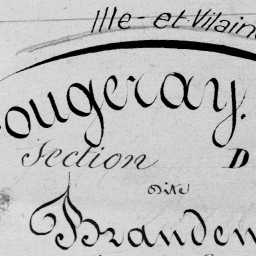 Ille-et-Vilaine
ougeray.
Section D
dite
Branden